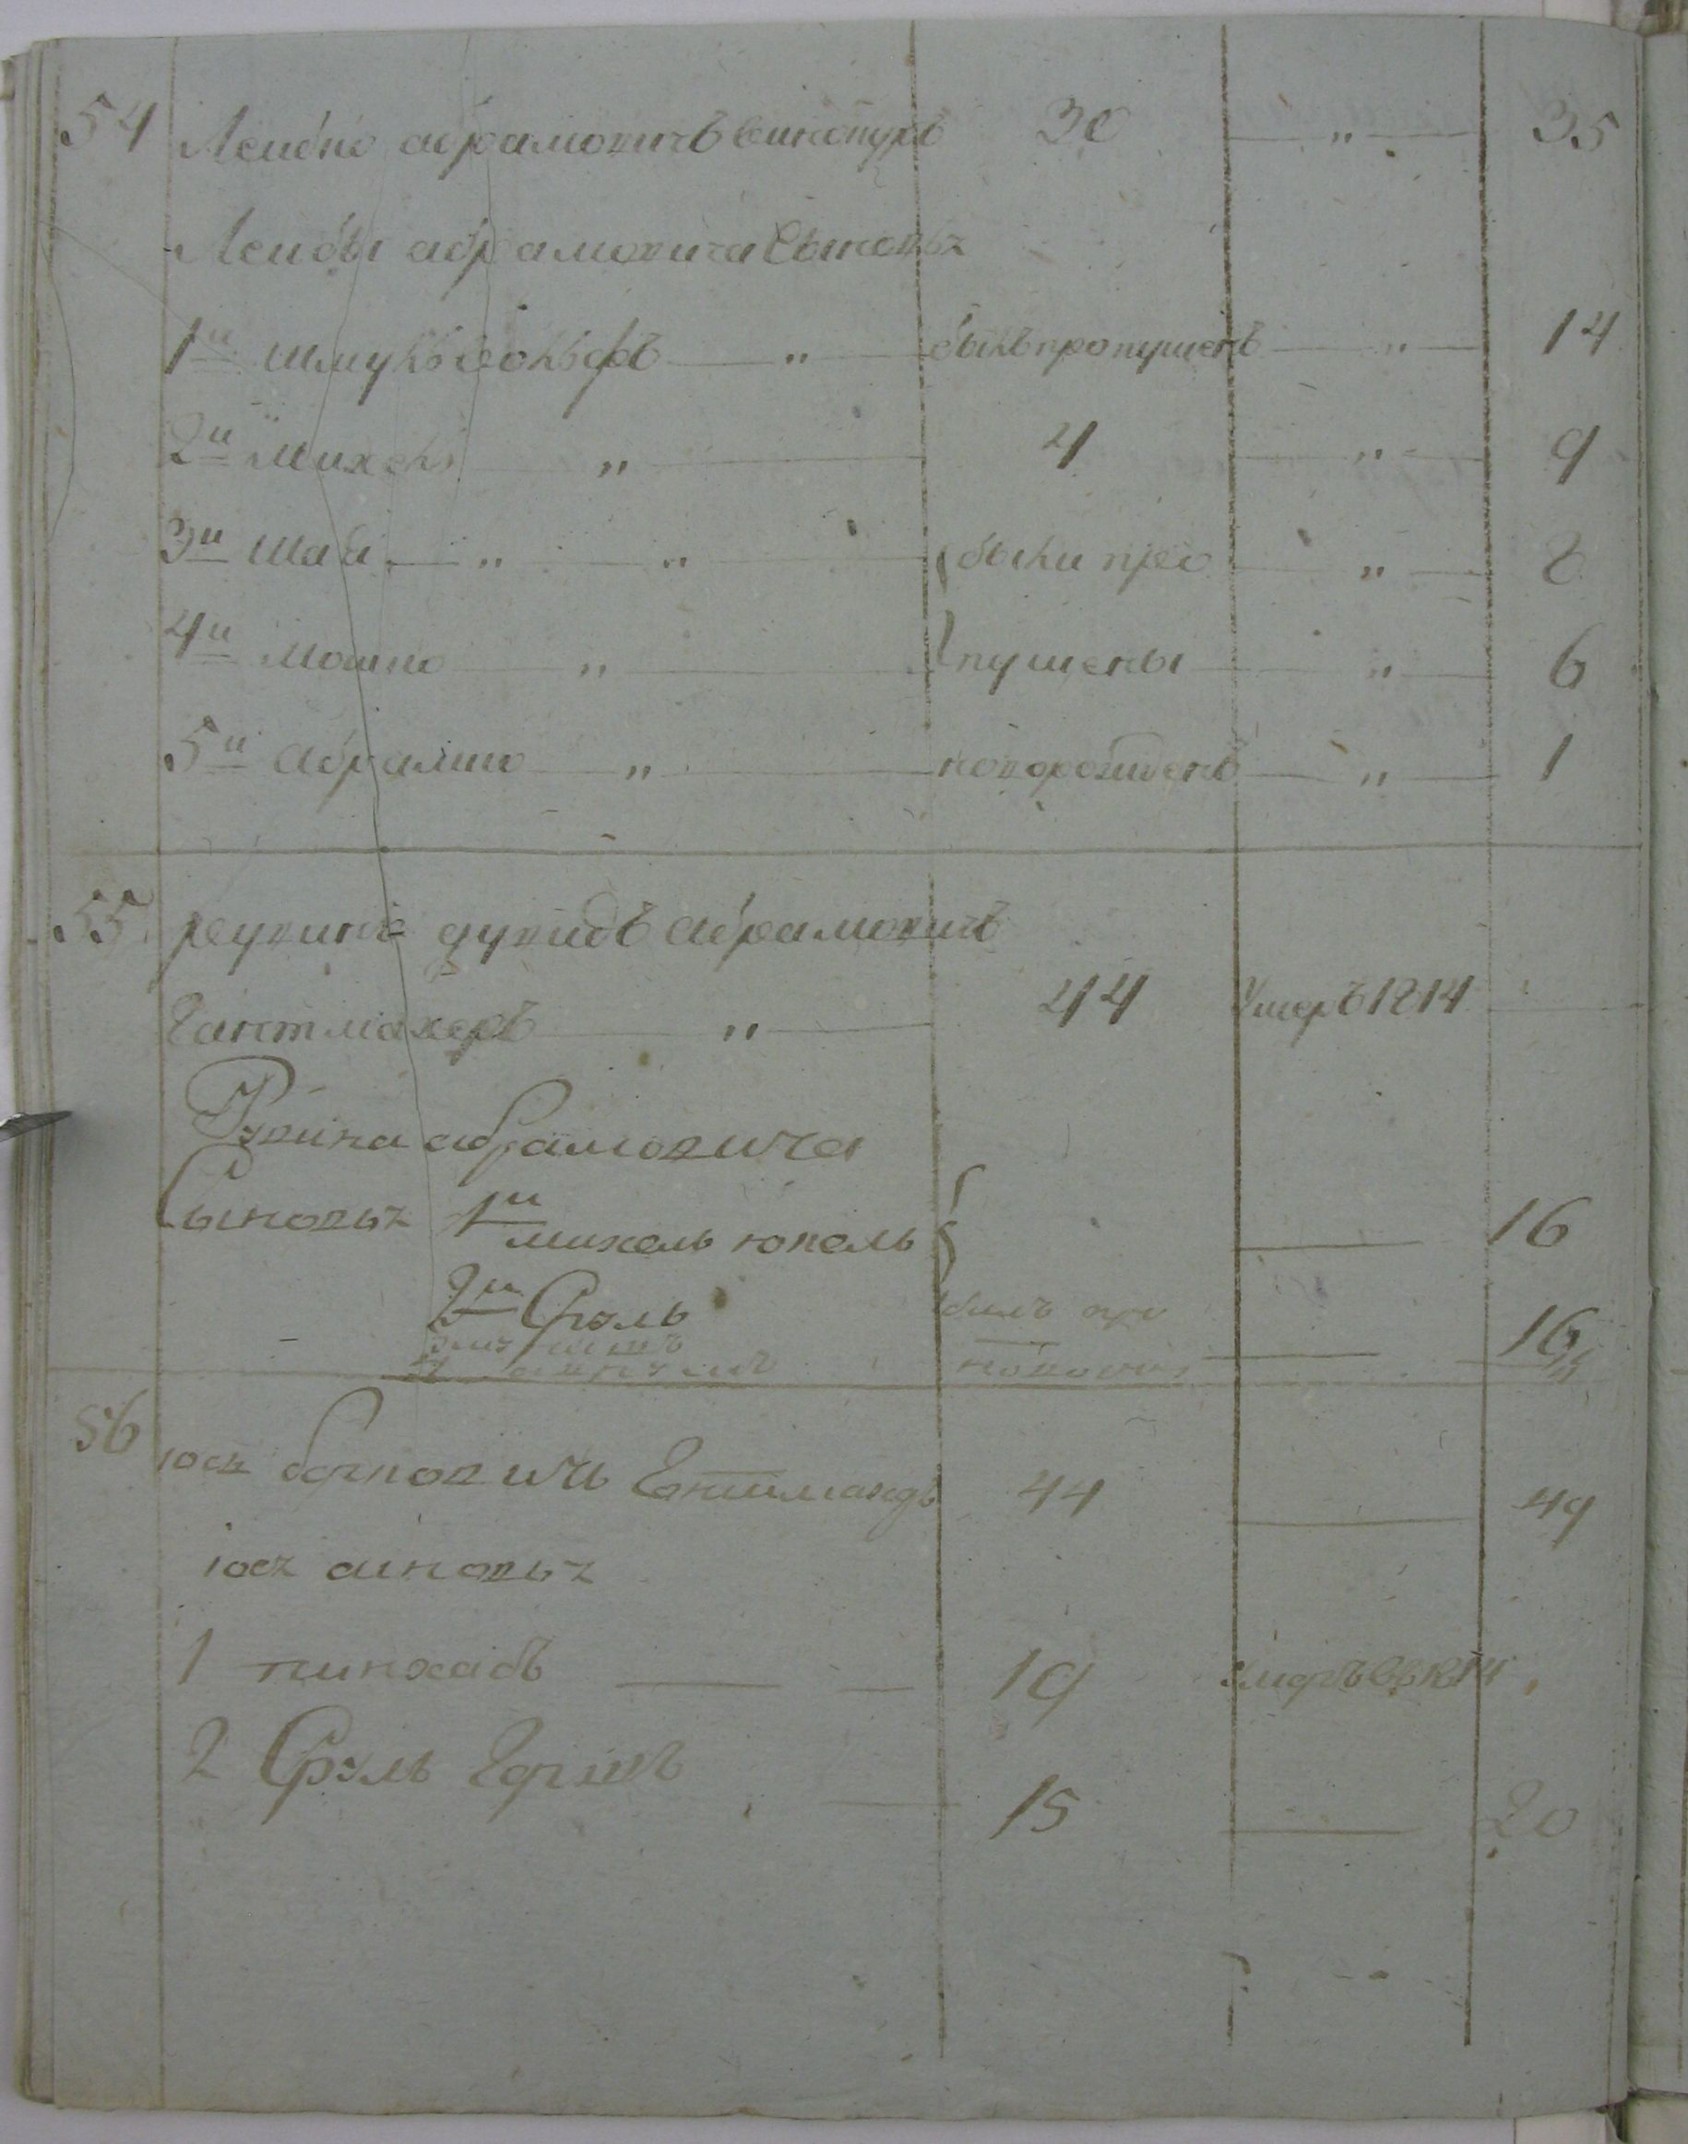 54 Лейбко абрамовичъ винокуръ 30 — „ — 35
Лейбы абрамовича Сыновья
1й шмуль — „ — былъ пропущенъ — „ — 14
2й михель — „ — 4 — „ — 9
3й шая — „ — „ — были про — „ — 8
4й мошко — „ — пущены — „ — 6
5й абрамко — „ — новорожденъ — „ — 1
55 рувинъ дувидъ абрамовичъ
Гантмахеръ — „ — 44 Умеръ 1814 —
Рувина абрамовича
Сыновья 1й михель юкель — 16
2й Сруль былъ про — 16
56 иося берковичъ 44 — 49
иося синовья
1 пинхасъ — — 19 умеръ
2 Сруль Гершъ — 15 — 20